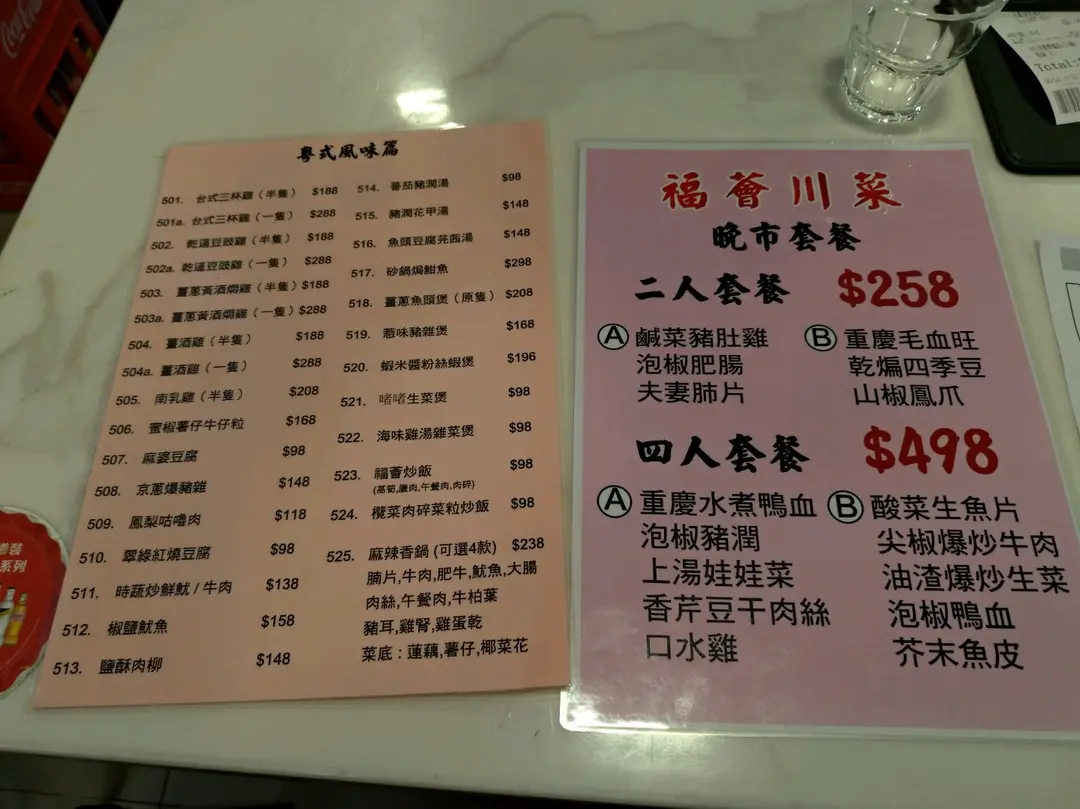 粵式風味篇
501. 台式三杯雞（半隻） $188
501a. 台式三杯雞（一隻） $288
502. 乾逼豆豉雞（半隻） $188
502a. 乾逼豆豉雞（一隻） $288
503. 薑蔥黃酒焗雞（半隻）$188
503a. 薑蔥黃酒焗雞（一隻）$288
504. 薑酒雞（半隻） $188
504a. 薑酒雞（一隻） $288
505. 南乳雞（半隻） $208
506. 蜜椒薯仔牛仔粒 $168
507. 麻婆豆腐 $98
508. 京蔥爆豬雜 $148
509. 鳳梨咕嚕肉 $118
510. 翠綠紅燒豆腐 $98
511. 時蔬炒鮮魷 / 牛肉 $138
512. 椒鹽魷魚 $158
513. 鹽酥肉柳 $148
514. 蕃茄豬潤湯 $98
515. 豬潤花甲湯 $148
516. 魚頭豆腐芫茜湯 $148
517. 砂鍋焗鮋魚 $298
518. 薑蔥魚頭煲（原隻） $208
519. 惹味豬雜煲 $168
520. 蝦米醬粉絲蝦煲 $196
521. 啫啫生菜煲 $98
522. 海味雞湯雜菜煲 $98
523. 福薈炒飯 $98
(萵筍,臘肉,午餐肉,肉碎)
524. 欖菜肉碎菜粒炒飯 $98
525. 麻辣香鍋 (可選4款) $238
腩片,牛肉,肥牛,魷魚,大腸
肉絲,午餐肉,牛柏葉
豬耳,雞腎,雞蛋乾
菜底：蓮藕,薯仔,椰菜花
福薈川菜
晚市套餐
二人套餐 $258
Ⓐ 鹹菜豬肚雞
泡椒肥腸
夫妻肺片
Ⓑ 重慶毛血旺
乾煸四季豆
山椒鳳爪
四人套餐 $498
Ⓐ 重慶水煮鴨血
泡椒豬潤
上湯娃娃菜
香芹豆干肉絲
口水雞
Ⓑ 酸菜生魚片
尖椒爆炒牛肉
油渣爆炒生菜
泡椒鴨血
芥末魚皮
Total:
系列
Coca-Cola